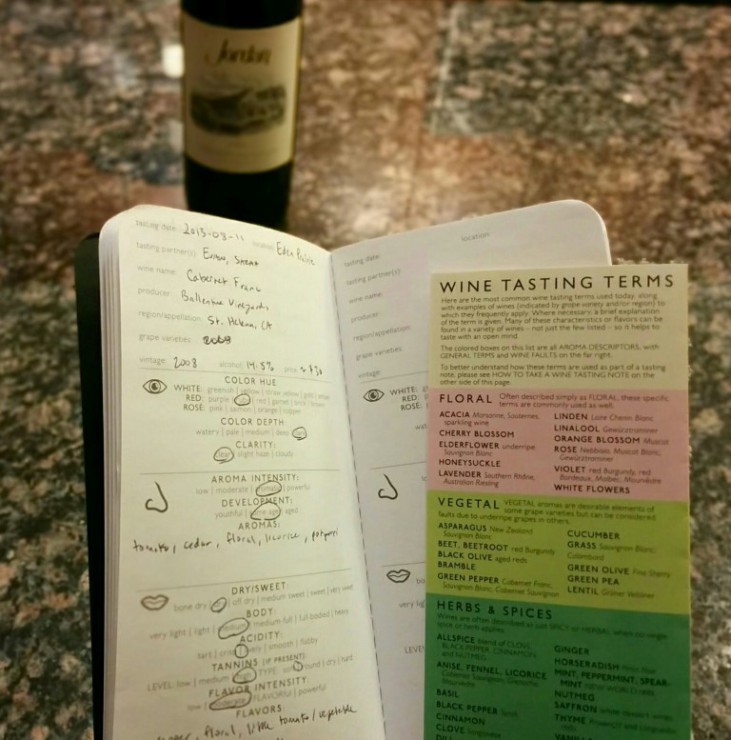 Jordan
tasting date: location: Eden Prairie
tasting partner(s):
wine name: Cabernet Franc
producer: Ballentine Vineyards
region/appellation: St. Helena, CA
grape varieties:
vintage: 2008 alcohol: 14.5%
COLOR HUE
WHITE: greenish | yellow | straw yellow | gold |
RED: purple | | red | garnet | brick | brown
ROSÉ: pink | salmon | orange | copper
COLOR DEPTH:
watery | pale | medium | deep | dark
CLARITY:
clear | slight haze | cloudy
AROMA INTENSITY:
low | moderate | aromatic | powerful
DEVELOPMENT:
youthful | some age | aged
AROMAS:
tomato, cedar, floral, licorice,
DRY/SWEET:
bone dry | dry | off dry | medium sweet | sweet | very sweet
BODY:
very light | light | medium | medium-full | full-bodied | heavy
ACIDITY:
tart | crisp | lively | smooth | flabby
TANNINS (IF PRESENT):
LEVEL: low | medium | high TYPE: | round | dry | hard
FLAVOR INTENSITY:
low | moderate | flavorful | powerful
FLAVORS:
floral, little tomato/vegetable
tasting date: location:
tasting partner(s):
wine name:
producer:
region/appellation:
grape varieties:
vintage:
WHITE:
RED:
ROSÉ:
WINE TASTING TERMS
Here are the most common wine tasting terms used today, along
with examples of wines (indicated by grape variety and/or region) to
which they frequently apply. Where necessary, a brief explanation
of the term is given. Many of these characteristics or flavors can be
found in a variety of wines – not just the few listed – so it helps to
taste with an open mind.
The colored boxes on this list are all AROMA DESCRIPTORS, with
GENERAL TERMS and WINE FAULTS on the far right.
To better understand how these terms are used as part of a tasting
note, please see HOW TO TAKE A WINE TASTING NOTE on the
other side of this page.
FLORAL Often described simply as FLORAL, these specific
terms are commonly used as well.
ACACIA Marsanne, Sauternes,
sparkling wine
CHERRY BLOSSOM
ELDERFLOWER underripe
Sauvignon Blanc
HONEYSUCKLE
LAVENDER Southern Rhône,
Australian Riesling
LINDEN Loire Chenin Blanc
LINALOOL Gewürztraminer
ORANGE BLOSSOM Muscat
ROSE Nebbiolo, Muscat Blanc,
Gewürztraminer
VIOLET red Burgundy, red
Bordeaux, Malbec, Mourvèdre
WHITE FLOWERS
VEGETAL VEGETAL aromas are desirable elements of
some grape varieties but can be considered
faults due to underripe grapes in others.
ASPARAGUS New Zealand
Sauvignon Blanc
BEET, BEETROOT red Burgundy
BLACK OLIVE aged reds
BRAMBLE
GREEN PEPPER Cabernet Franc,
Sauvignon Blanc, Cabernet Sauvignon
CUCUMBER
GRASS Sauvignon Blanc,
Colombard
GREEN OLIVE Fino Sherry
GREEN PEA
LENTIL Grüner Veltliner
HERBS & SPICES
Wines are often described as just SPICY or HERBAL when no single
spice or herb
ALLSPICE blend of CLOVE,
BLACK PEPPER, CINNAMON,
and NUTMEG
ANISE, FENNEL, LICORICE
Cabernet Sauvignon, Grenache,
BASIL
BLACK PEPPER Syrah
CINNAMON
CLOVE
DILL
GINGER
HORSERADISH
MINT, PEPPERMINT, SPEAR-
MINT
NUTMEG
SAFFRON
THYME